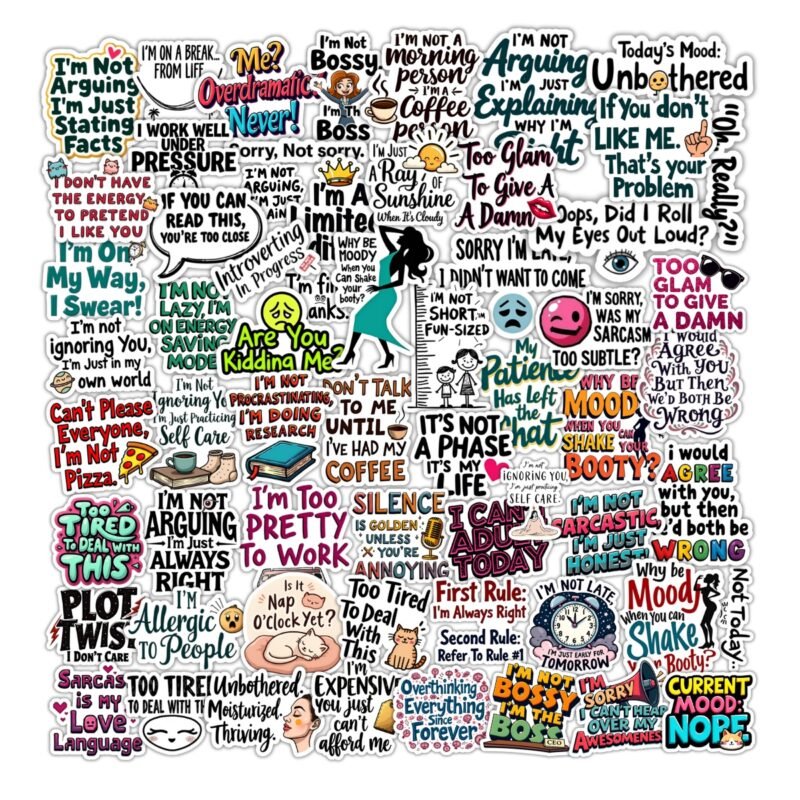 I'm Not
Arguing
I'm Just
Stating
Facts
I'M ON A BREAK...
FROM LIFE
Me?
Overdramatic?
Never!
I'm Not
Bossy
I'm Th
Boss
I'M NOT A
morning
person
I'M A
Coffee
person
I'M NOT
Arguing
I'M JUST
Explaining
WHY I'M
Right
Today's Mood:
Unbothered
I WORK WELL
UNDER
PRESSURE
Sorry, Not sorry.
If you don't
LIKE ME.
That's your
Problem
"Oh, Really?!
I DON'T HAVE
THE ENERGY
TO PRETEND
I LIKE YOU
IF YOU CAN
READ THIS,
YOU'RE TOO CLOSE
I'M NOT
ARGUING,
I'M JUST
I'M A
Limited
I'M JUST
A Ray
OF
SUNSHINE
When It's Cloudy
Too Glam
To Give A
A Damn
Oops, Did I Roll
My Eyes Out Loud?
I'm On
My Way,
I Swear!
Introverting
In Progress
WHY BE
MOODY
When You
Can Shake
your
booty?
SORRY I'M LATE,
I DIDN'T WANT TO COME
TOO
GLAM
TO GIVE
A DAMN
I'M NOT
LAZY, I'M
ON ENERGY
SAVING
MODE
I'm fi
anks.
Are You
Kidding Me?
I'M NOT
SHORT I'M
FUN-SIZED
I'M SORRY,
WAS MY
SARCASM
TOO SUBTLE?
I'm not
ignoring You,
I'm Just in my
own world
I Would
Agree
With You
But Then
We'd Both Be
Wrong
My
Patience
Has Left
the
Chat
Can't Please
Everyone,
I'm Not
Pizza.
I'm Not
Ignoring Yo
I'm Just Practicing
Self Care
I'M NOT
PROCRASTINATING,
I'M DOING
RESEARCH
DON'T TALK
TO ME
UNTIL
I'VE HAD MY
COFFEE
IT'S NOT
A PHASE
IT'S MY
LIFE
WHY BE
MOOD
WHEN YOU CAN
SHAKE YOUR
BOOTY?
I'm not
IGNORING YOU,
I'm just practicing
SELF CARE.
i would
AGREE
with you,
but then
we'd both be
WRONG
Too
TIRED
To DEAL WITH
THIS
I'M NOT
ARGUING
I'm Just
ALWAYS
RIGHT
I'm Too
PRETTY
To WORK
SILENCE
IS GOLDEN
UNLESS
YOU'RE
ANNOYING
I CAN'
ADU
TODAY
I'M NOT
SARCASTIC,
I'M JUST
HONEST!
PLOT
TWIST
I DON'T CARE
I'M
Allergic
TO People
Is It
Nap
O'Clock Yet?
Too Tired
To Deal
With
This
First Rule:
I'm Always Right
Second Rule:
Refer To Rule #1
I'M NOT LATE
I'M JUST EARLY FOR
TOMORROW
Why be
Moody
When you can
Shake
Booty?
Not Today..
SARCAS
is My
Love
Language
TOO TIRED
TO DEAL WITH TH
Unbothered
Moisturized.
Thriving.
I'M
EXPENSIVE
you just
can't
afford me
Overthinking
Everything
Since
Forever
I'M NOT
BOSSY
I'M THE
BOSS
CEO
I'M
SORRY
I CAN'T HEAR
OVER MY
AWESOMENES
CURRENT
MOOD:
NOPE.